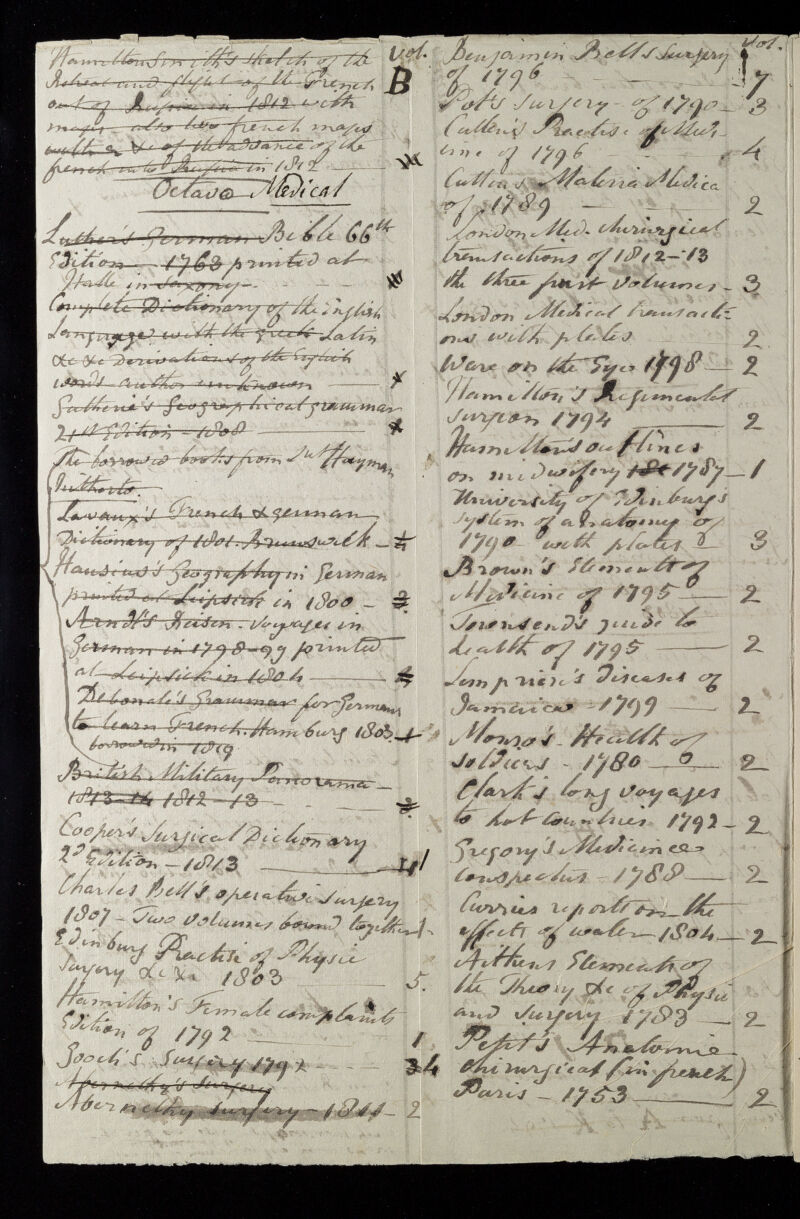 vol.
Hamilton Smith's sketch of the
Retreat and flight of the French
B
out of Russia in 1812 with
maps also two french maps
with a &c of the advance of the
french into Russia in 1812
Octavo Medical
Luther's German Bible 66th
Edition - 1763 printed at
Halle in Saxony -
Complete Dictionary of the English
Language with the Greek Latin
&c &c Derivations of the English
words author unknown
Gutherie's Geographical grammar
21st Edition - 1808
The borrowed books from Hayman
Lavaux's French & german
Dictionary of 1801. Brunswick -
Geography in German
printed at Leipsick in 1800 -
Arndt's Reisen. voyages in
German in 1798-99 printed
at Leipsick in 1804
Debonale's Grammar for Germans
to learn French. Hamburg 1803. 1
borrowed in 1819
British Military Panorama -
1813-14 1812-13
Cooper's Surgical Dictionary
2d Edition - 1813 1
Charles Bell's operative surgery
1807 - Two volumes bound together 1
Edinburg Practise of Physic
Surgery &c &c 1803 5.
Hamilton's Female complaints
Edition of 1792 1
Gooch's Surgery 1792 - 3 4
Abernethy's Surgery
Abernethy surgery - 1811 - 2
vol.
Benjamin Bell's Surgery
of 1796 7
Pot's Surgery - of 1790 - 3
Cullen's Practise of Medi-
cine of 1796 4
Cullens Materia Medica
of 1789 2
London Med. chirurgical
transactions of 1812-13
the three first volumes - 3
London Medical transacti-
ons with plates 2
Ware on the Eyes 1798 - 2
Hamilton's Regimental
surgeon 1794 2
Hamilton's outlines
on midwifery 1787 - 1
University of Edinburgs
system of anatomy of
1790 with plates 3
Brown's Elements of
Medicine of 1795 - 2
Townsend's guide to
health of 1795 2
Lempriere's diseases of
Jamaica 1799 - 2
Monro's Health of
soldiers - 1780 - 2
Clark's long voyages
to hot countries 1792 - 2
Gregory's Medicinae
conspectus - 1788 - 2
Curries reports on the
effects of water 1804 - 2
Aitkens Elements of
the Theory &c of Physic
and surgery 1783 - 2
Petit's Anatomie
chirurgical (in french)
Paris - 1753 2